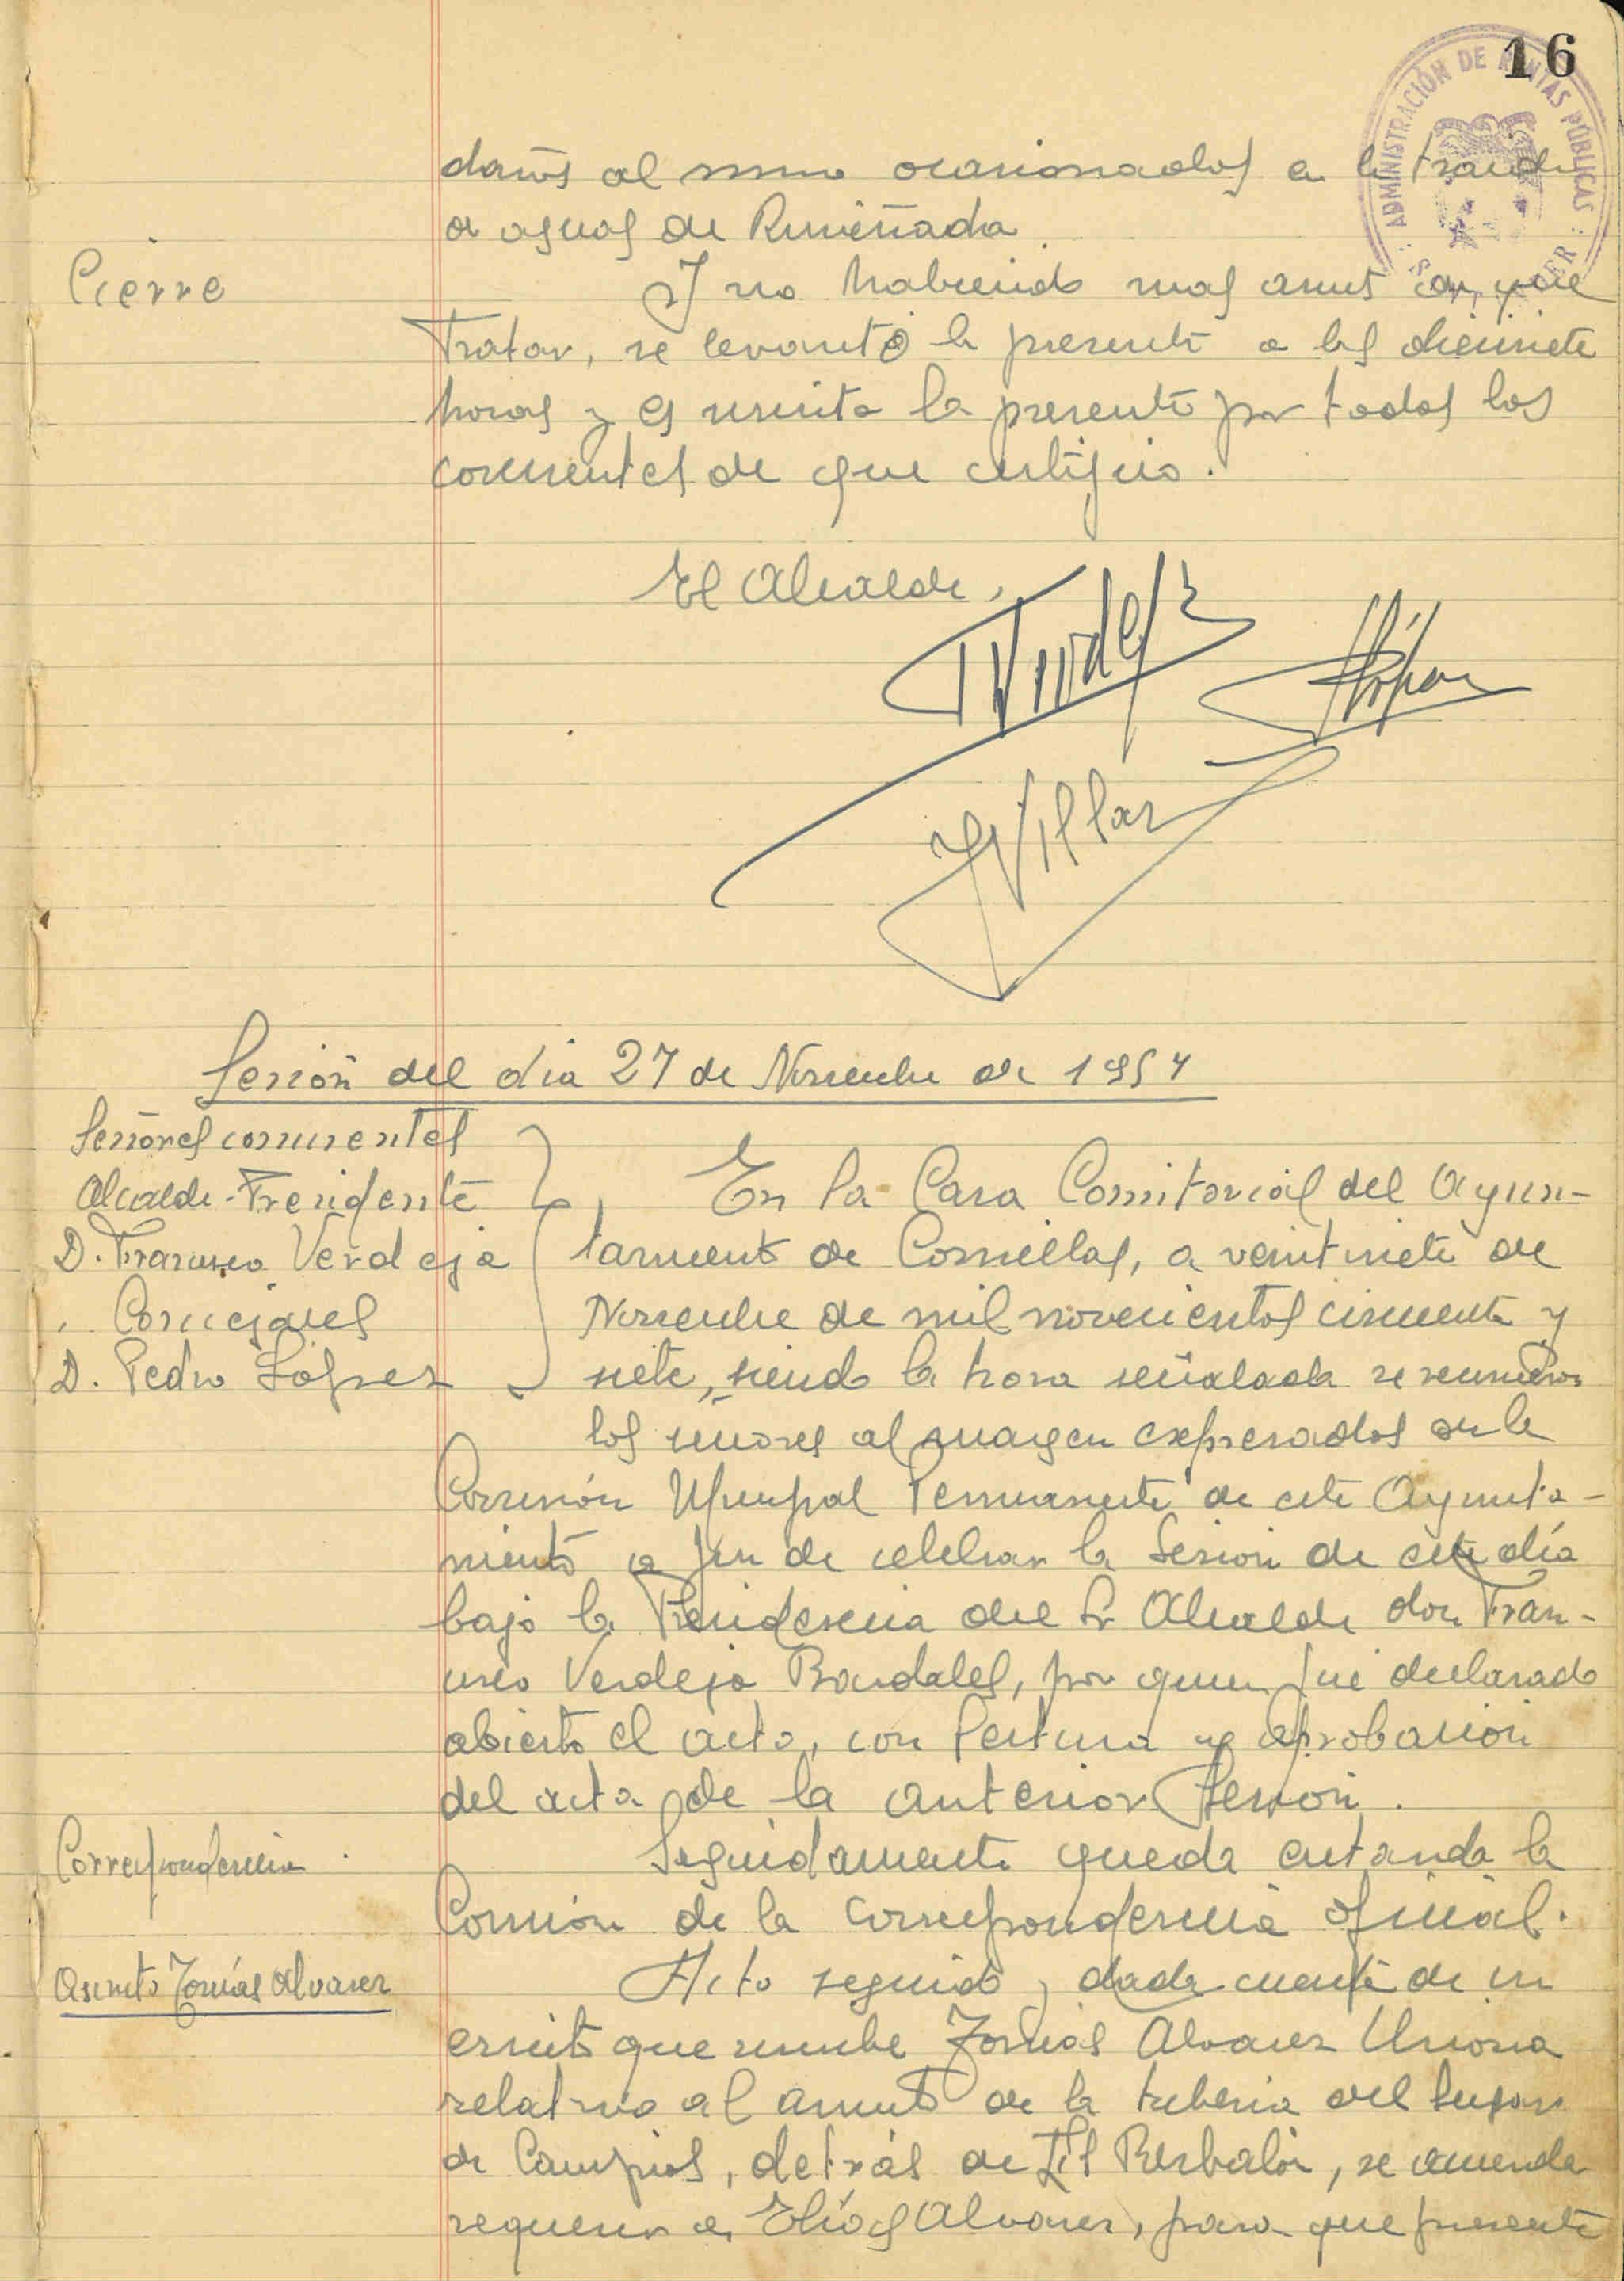 16
ADMINISTRACIÓN DE RENTAS PÚBLICAS
daños al mismo ocasionados en la traida
de aguas de Ruiseñada.
Cierre
Y no habiendo mas asuntos de que
tratar, se levantó la presente a las diecisiete
horas y es suscrita la presente por todos los
concurrentes de que certifico.
El Alcalde,
Verdeja
López
Villar
Sesión del dia 27 de Noviembre de 1957
Señores concurrentes
Alcalde-Presidente
D. Francisco Verdeja
Concejales
D. Pedro López
En la Casa Consistorial del Ayun-
tamiento de Comillas, a veintisiete de
Noviembre de mil novecientos cincuenta y
siete, siendo la hora señalada se reunieron
los señores al margen expresados de la
Comisión Municipal Permanente de este Ayunta-
miento a fin de celebrar la Sesion de este día
bajo la Presidencia del Sr Alcalde don Fran-
cisco Verdeja Bardales, por quien fué declarado
abierto el acto, con lectura y aprobación
del acta de la anterior Sesión.
Correspondencia
Seguidamente queda enterada la
Comisión de la correspondencia oficial.
Asunto Tomás Alvarez
Acto seguido, dada cuenta de un
escrito que suscribe Tomás Alvarez
relativo al asunto de la tuberia del lugar
de Campios, detrás de El Resbalón, se acuerda
requerir a Elías Alvarez, para que presente